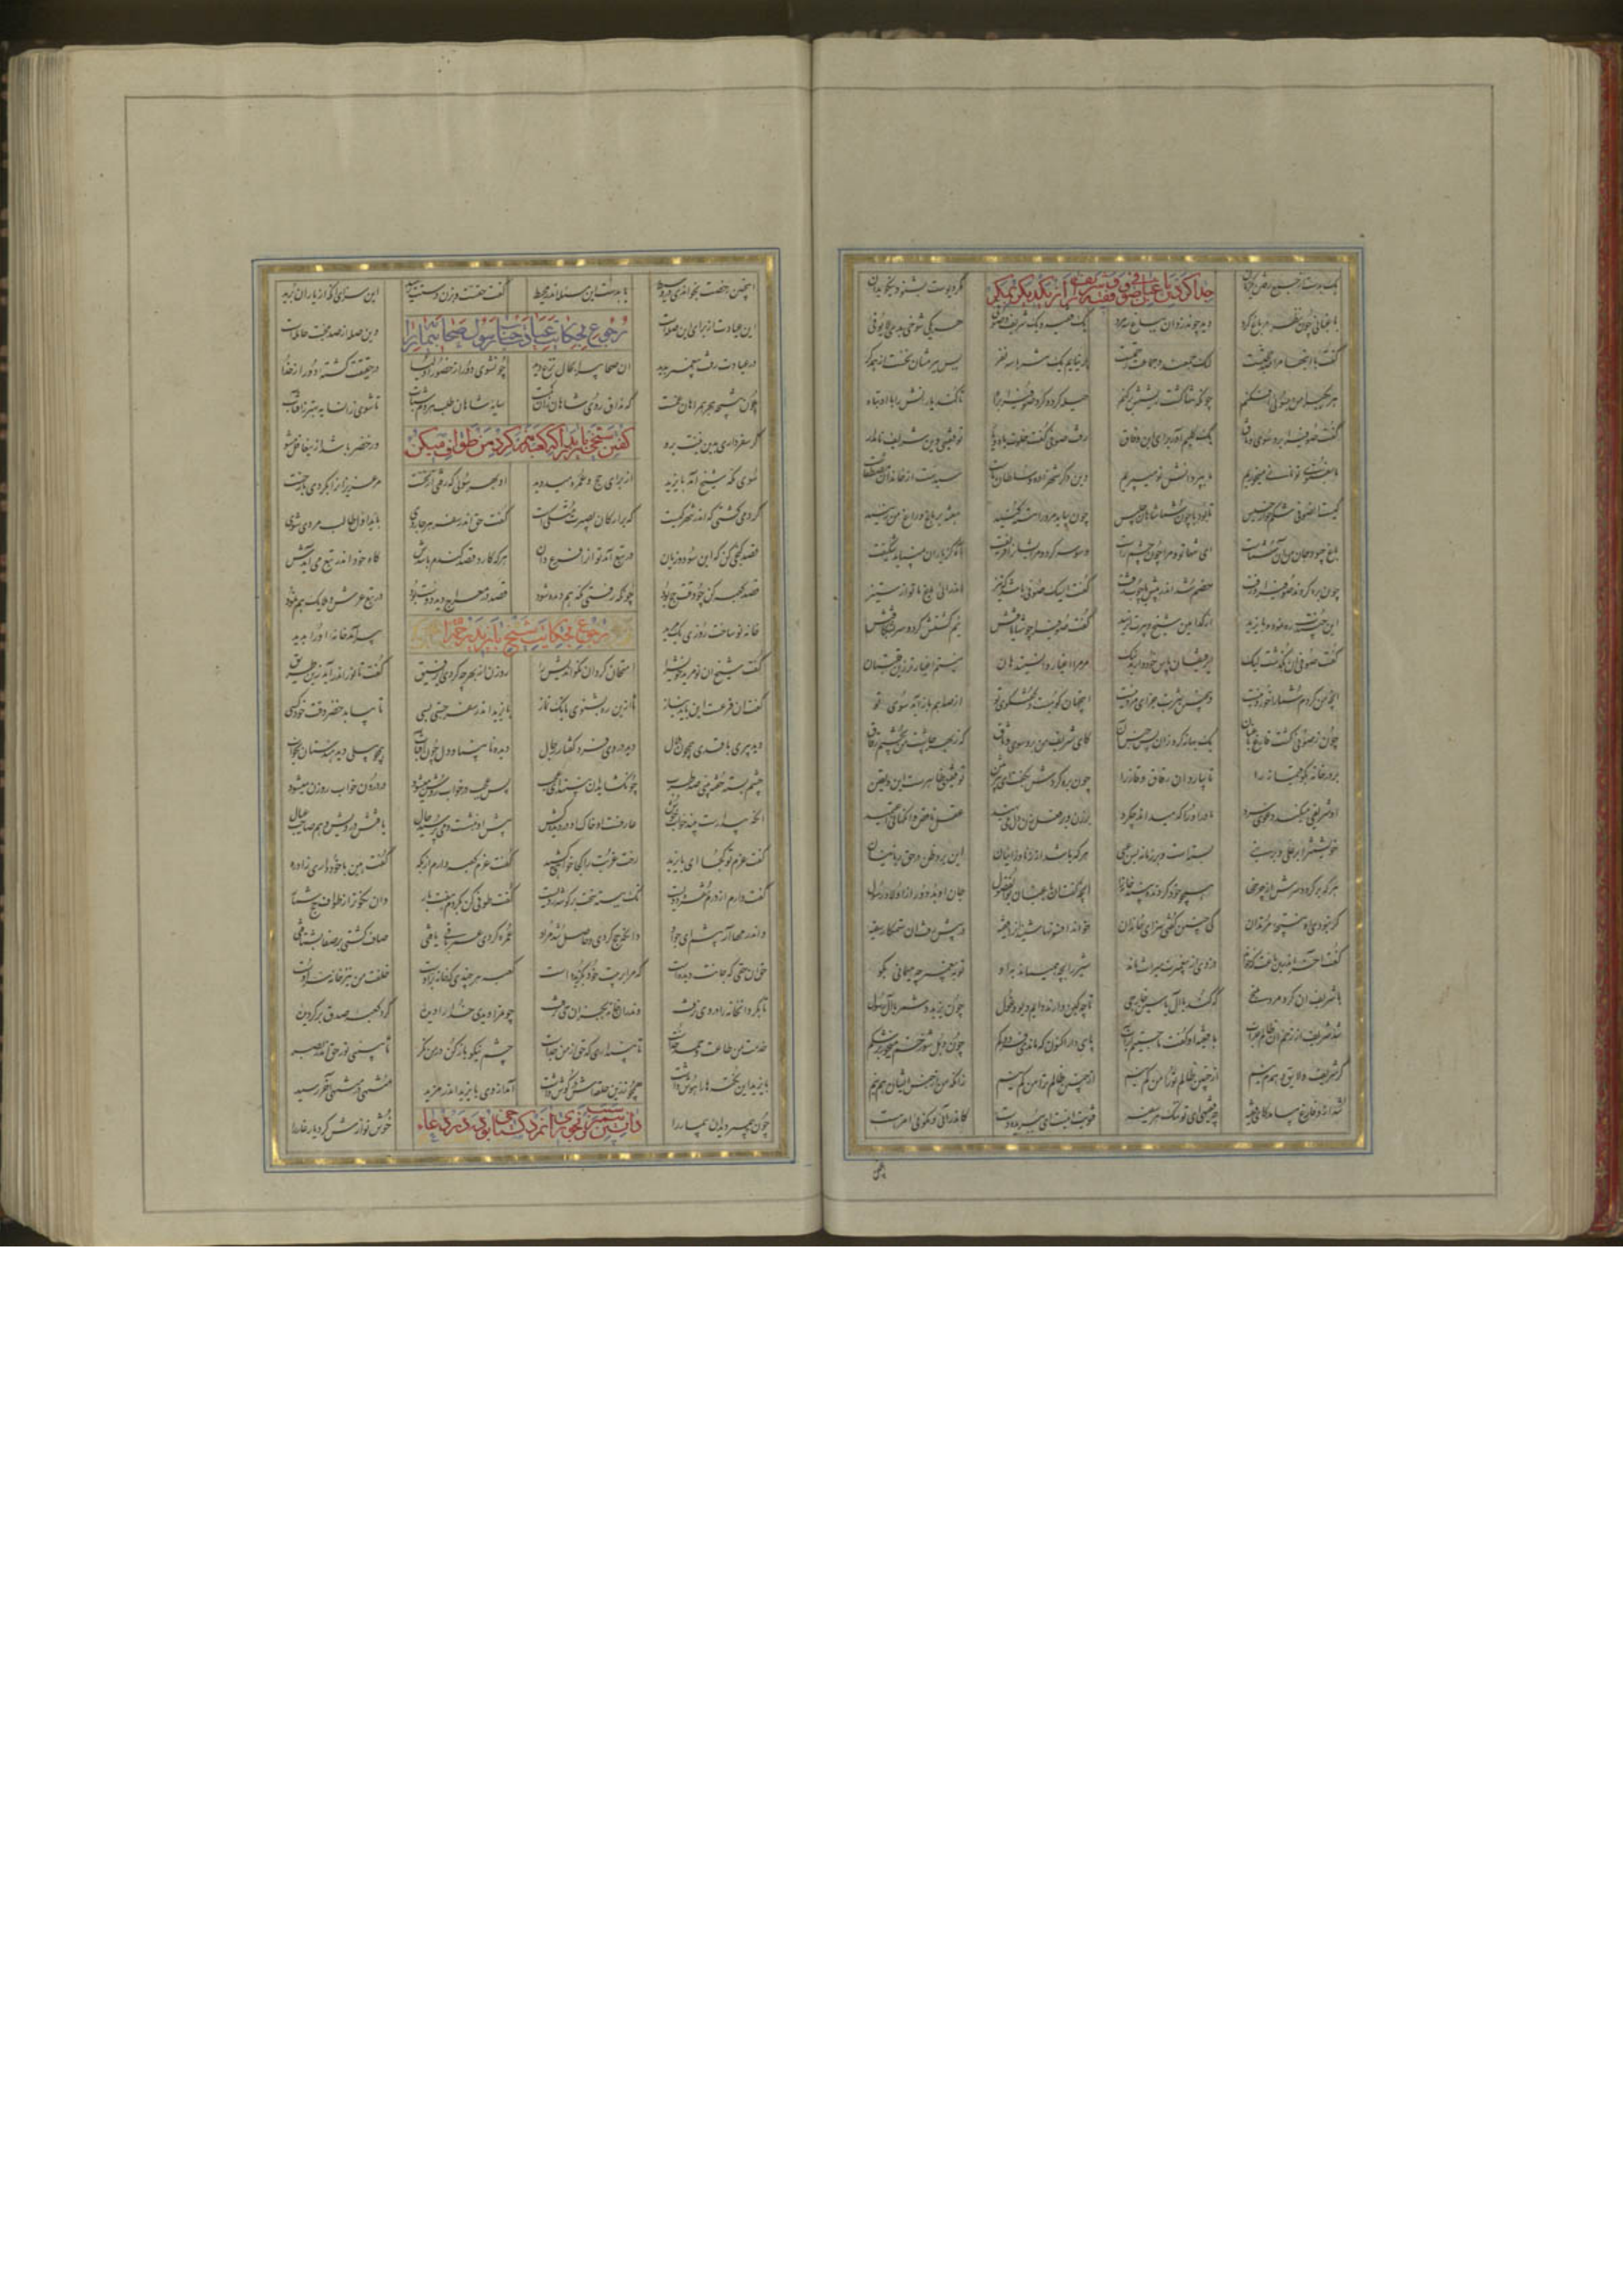 یک بدست از جمع رفتن یکزمان
جدا کردن باغبان صوفی و فقیه و علوی را از یکدیگر
مکر دیوست بشنو و نیکو بدان
باغبانی چون نظر در باغ کرد دید چون دزدان بباغ خود سه مرد یک فقیه و یک شریف و صوفیی هر یکی شوخی بدی لایوفیی
گفت با اینها مرا صد حجتست لیک جمعند و جماعت رحمتست بر نیایم یک تنه با سه نفر پس ببرمشان نخست از همدگر
هر یکی را من بسوئی افکنم چونکه تنها گشت سبلتش برکنم حیله کرد و کرد صوفی را براه تا کند یارانش را با او تباه
گفت صوفی را برو سوی وثاق یک گلیم آور برای این رفاق رفت صوفی گفت خلوت با دو یار تو فقیهی وین شریف نامدار
ما بفتوی تو نانی میخوریم ما بپر دانش تو میپریم وین دگر شهزاده و سلطان ماست سیدست از خاندان مصطفاست
کیست آن صوفی شکم خوار خسیس تا بود با چون شما شاهان جلیس چون بیاید مر ورا پنبه کنید هفته بر باغ و راغ من زنید
باغ چبود جان من آن شماست ای شما بوده مرا چون چشم راست وسوسه کرد و مر ایشانرا فریفت آه کز یاران نمیباید شکیفت
چون بره کردند صوفی را و رفت خصم شد اندر پیش با چوب زفت گفت ای سگ صوفیی باشد که تیز اندر آئی باغ ما تو از ستیز
این جنیدت ره نمود و بایزید از کدامین شیخ و پیرت این رسید گفت صوفی را چو تنها یافتش نیم کشتش کرد و سر بشکافتش
گفت صوفی آن من بگذشت لیک ای رفیقان پاس خود دارید نیک مر مرا اغیار دانستید هان نیستم اغیارتر زین قلتبان
آنچه من خوردم شما را خوردنیست وین چنین شربت جزای هر دنیست این جهان کوهست و گفت و گوی تو از صدا هم باز آید سوی تو
چون ز صوفی گشت فارغ باغبان یک بهانه کرد زان پس جنس آن کای شریف من برو سوی وثاق که ز بهر چاشت پختم من رقاق
بر در خانه بگو قیماز را تا بیارد آن رقاق و قاز را چون بره کردش بگفت ای تیزبین تو فقیهی ظاهرست این و یقین
او شریفی میکند دعوی سرد مادر او را که میداند چه کرد بر زن و بر فعل زن دل مینهید عقل ناقص وانگهانی اعتمید
خویشتن را بر علی و بر نبی بسته است و در زمانه بس غبی هر که باشد از زنا و زانیان این برد ظن در حق ربانیان
هر که بر گردد سرش از چرخها همچو خود گردنده بیند خانه را آنچه گفت آن باغبان بوالفضول حال او بد دور از اولاد رسول
گر نبودی او نتیجه مرتدان کی چنین گفتی برای خاندان خواند افسونها شنید آنرا فقیه در پیش رفت آن ستمکار سفیه
گفت ای خر اندرین باغت که خواند دزدی از پیغمبرت میراث ماند شیر را بچه همی ماند بدو تو به پیغمبر چه میمانی بگو
با شریف آن کرد مرد ملتجی که کند با آل یاسین خارجی تا چه کین دارند دایم دیو و غول چون یزید و شمر با آل رسول
شد شریف از زخم آن ظالم خراب با فقیه او گفت ما جستیم از آب پای دار اکنون که ماندی فرد و کم چون دهل شو زخم میخور بر شکم
گر شریف و لایق و همدم نیم از چنین ظالم ترا من کم نیم
شد ازو فارغ بیامد کای فقیه چه فقیهی ای تو ننگ هر سفیه فتویت اینست ای ببریده دست کاندر آئی و نگوئی امر هست
این چنین رخصت بخواندی در وسیط یا بدست این مسئله اندر محیط گفت حقت بزن دستت رسید این سزای آنکه از یاران برید
رجوع بحکایت عیادت جناب رسول صحابی بیمار را
این عیادت از برای این صله است وین صله از صد محبت حامله است
در عیادت رفت پیغمبر بدید آن صحابی را بحال نزع دید چون شوی دور از حضور اولیا در حقیقت گشته دور از خدا
چون نتیجه هجر همراهان غمست کی فراق روی شاهان زان کمست سایه شاهان طلب هر دم شتاب تا شوی زان سایه بهتر ز آفتاب
گر سفر داری بدین نیت برو ور حضر باشد ازین غافل مشو
گفتن شیخی بایزید را که کعبه منم گرد من طوافی میکن
سوی مکه شیخ امت بایزید از برای حج و عمره میدوید او بهر شهری که رفتی از نخست مر عزیزان را بکردی باز جست
گرد میگشتی که اندر شهر کیست کو بر ارکان بصیرت متکیست گفت حق اندر سفر هر جا روی باید اول طالب مردی شوی
قصد گنجی کن که این سود و زیان در تبع آید تو آنرا فرع دان هر که کارد قصد گندم باشدش کاه خود اندر تبع می آیدش
قصد کعبه کن چو وقت حج بود چونکه رفتی مکه هم دیده شود قصد در معراج دید دوست بود در تبع عرش و ملایک هم نمود
خانه نو ساخت روزی یک مرید پیر آمد خانه او را بدید
رجوع بحکایت شیخ بایزید رحمه الله
گفت شیخ آن نو مرید خویش را امتحان کرد آن نکو اندیش را روزن از بهر چه کردی ای رفیق گفت تا نور اندر آید زین طریق
گفت آن فرعست این باید نیاز تا ازین ره بشنوی بانگ نماز بایزید اندر سفر جستی بسی تا بیابد خضر وقت خود کسی
دید پیری با قدی همچون هلال دید در وی فر و گفتار رجال دیده نابینا و دل چون آفتاب همچو پیلی دیده هندستان بخواب
چشم بسته خفته بیند صد طرب چون گشاید آن نبیند ای عجب بس عجب در خواب روشن میشود دل درون خواب روزن میشود
عارفست او خاک او در دیده کش پیش او بنشست و میپرسید حال یافتش درویش و هم صاحب عیال
گفت عزم تو کجا ای بایزید رخت غربت را کجا خواهی کشید گفت عزم کعبه دارم از پگه گفت هین با خود چه داری زاد ره
گفت دارم از درم نقره دویست نک ببسته سخت بر گوشه ردیست گفت طوفی کن بگردم هفت بار وان نکوتر از طواف حج شمار
وان درمها پیش من نه ای جواد دان که حج کردی و حاصل شد مراد عمره کردی عمر باقی یافتی صاف گشتی بر صفا بشتافتی
حق آن حقی که جانت دیده است که مرا بر بیت خود بگزیده است کعبه هر چندی که خانه بر اوست خلقت من نیز خانه سر اوست
تا بکرد آن خانه را در وی نرفت وندر این خانه بجز آن حی نرفت چون مرا دیدی خدا را دیده گرد کعبه صدق بر گردیده
خدمت من طاعت و حمد خداست تا نپنداری که حق از من جداست چشم نیکو باز کن در من نگر تا ببینی نور حق اندر بشر
بایزید آن نکتها را هوش داشت همچو زرین حلقه اش در گوش داشت آمد از وی بایزید اندر مزید منتهی در منتها آخر رسید
چون پیمبر دید آن بیمار را خوش نوازش کرد یار غار را
دانستن پیغمبر که سبب رنجوری آن مرد گستاخی بود در دعا